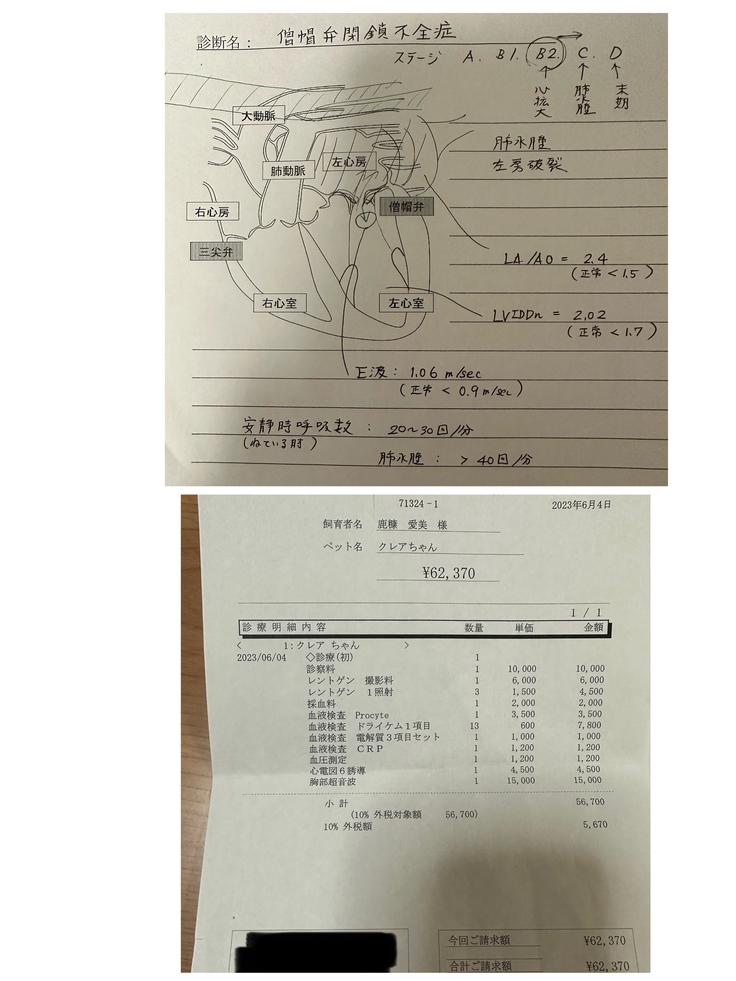 診断名： 僧帽弁閉鎖不全症
ステージ A. B1. B2. C. D
心拡大
肺水腫
末期
大動脈
肺動脈
左心房
右心房
僧帽弁
三尖弁
右心室
左心室
肺水腫
左房破裂
LA/AO = 2.4
(正常 < 1.5)
LVIDDn = 2.02
(正常 < 1.7)
E波： 1.06 m/sec
(正常 < 0.9 m/sec)
安静時呼吸数 ： 20~30回/分
(ねている時)
肺水腫 ： > 40回/分
71324-1 2023年6月4日
飼育者名 鹿糠 愛美 様
ペット名 クレアちゃん
¥62,370
1 / 1
診 療 明 細 内 容 数量 単価 金額
< 1:クレア ちゃん >
2023/06/04 ◇診療(初) 1
診察料 1 10,000 10,000
レントゲン 撮影料 1 6,000 6,000
レントゲン 1照射 3 1,500 4,500
採血料 1 2,000 2,000
血液検査 Procyte 1 3,500 3,500
血液検査 ドライケム1項目 13 600 7,800
血液検査 電解質3項目セット 1 1,000 1,000
血液検査 CRP 1 1,200 1,200
血圧測定 1 1,200 1,200
心電図6誘導 1 4,500 4,500
胸部超音波 1 15,000 15,000
小 計 56,700
(10% 外税対象額 56,700)
10% 外税額 5,670
今回ご請求額 ¥62,370
合計ご請求額 ¥62,370